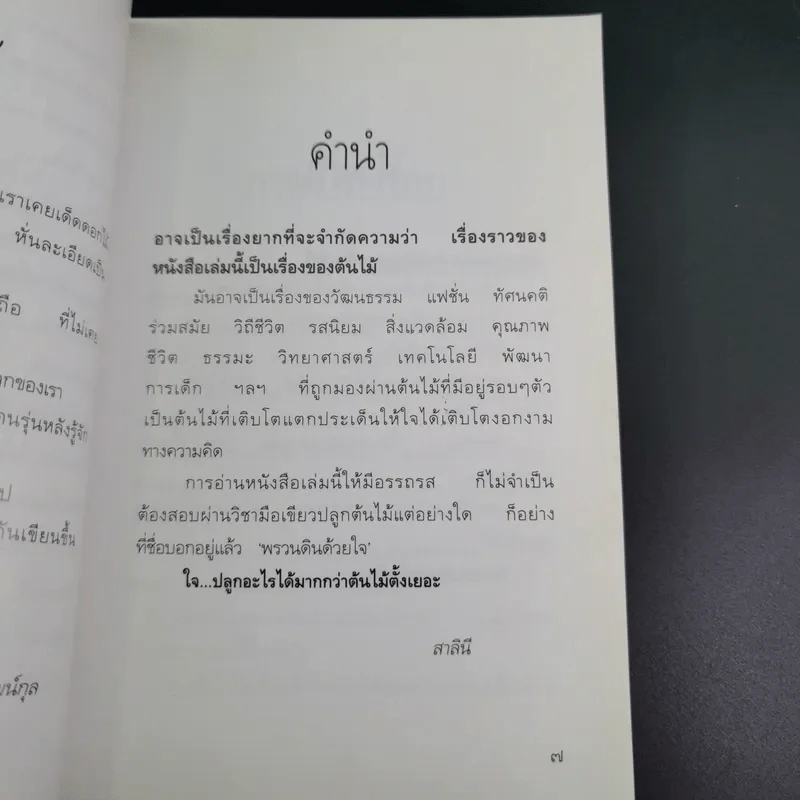 ราเคยเด็ดดอกไม้
หั่นละเอียดเป็น
ที่ไม่เคย
กของเรา
นรุ่นหลังรู้จัก
ป
กันเขียนขึ้น
คำนำ
อาจเป็นเรื่องยากที่จะจำกัดความว่า เรื่องราวของ
หนังสือเล่มนี้เป็นเรื่องของต้นไม้
มันอาจเป็นเรื่องของวัฒนธรรม แฟชั่น ทัศนคติ
ร่วมสมัย วิถีชีวิต รสนิยม สิ่งแวดล้อม คุณภาพ
ชีวิต ธรรมะ วิทยาศาสตร์ เทคโนโลยี พัฒนา
การเด็ก ฯลฯ ที่ถูกมองผ่านต้นไม้ที่มีอยู่รอบๆตัว
เป็นต้นไม้ที่เติบโตแตกประเด็นให้ใจได้เติบโตงอกงาม
ทางความคิด
การอ่านหนังสือเล่มนี้ให้มีอรรถรส ก็ไม่จำเป็น
ต้องสอบผ่านวิชามือเขียวปลูกต้นไม้แต่อย่างใด ก็อย่าง
ที่ชื่อบอกอยู่แล้ว ‘พรวนดินด้วยใจ’
ใจ...ปลูกอะไรได้มากกว่าต้นไม้ตั้งเยอะ
สาลินี
๗